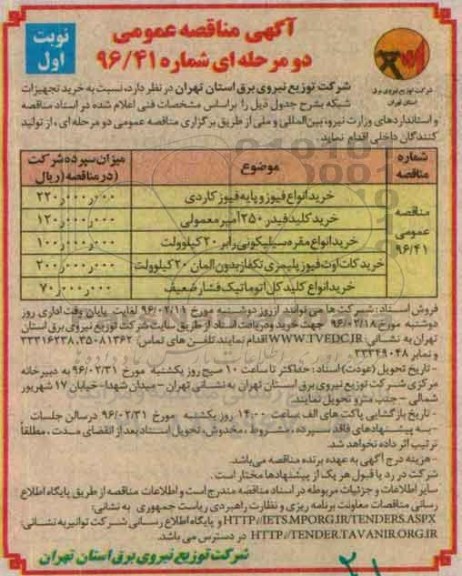 آگهی مناقصه عمومی
دو مرحله ای شماره ۹۶/۴۱
نوبت
اول
شرکت توزیع نیروی برق
استان تهران
شرکت توزیع نیروی برق استان تهران در نظر دارد، نسبت به خرید تجهیزات
شبکه بشرح جدول ذیل را براساس مشخصات فنی اعلام شده در اسناد مناقصه
و استانداردهای وزارت نیرو، بین المللی و ملی از طریق برگزاری مناقصه عمومی دو مرحله ای، از تولید
کنندگان داخلی اقدام نماید.
شماره مناقصه
موضوع
میزان سپرده شرکت در مناقصه (ریال)
مناقصه عمومی ۹۶/۴۱
خرید انواع فیوز و پایه فیوز کاردی ۲۲۰ر۰۰۰ر۰۰۰
خرید کلید فیدر ۲۵۰ آمپر معمولی ۱۲۰ر۰۰۰ر۰۰۰
خرید انواع مقره سیلیکونی رابر ۲۰ کیلوولت ۱۰۰ر۰۰۰ر۰۰۰
خرید کات اوت فیوز پلیمری تکفاز بدون المان ۲۰ کیلوولت ۲۰۰ر۰۰۰ر۰۰۰
خرید انواع کلید کل اتوماتیک فشار ضعیف ۷۰ر۰۰۰ر۰۰۰
فروش اسناد: شرکت ها می توانند از روز دوشنبه مورخ ۹۶/۰۲/۱۱ لغایت پایان وقت اداری روز
دوشنبه مورخ ۹۶/۰۲/۱۸ جهت خرید و دریافت اسناد از طریق سایت شرکت توزیع نیروی برق استان
تهران به نشانی: WWW.TVEDC.IR اقدام نمایند. تلفن های تماس: ۳۵۰۸۱۳۶۲، ۳۳۳۱۶۲۳۸
و نمابر ۳۳۳۴۹۰۴۸
- تاریخ تحویل (عودت) اسناد: حداکثر تا ساعت ۱۰ صبح روز یکشنبه مورخ ۹۶/۰۲/۳۱ به دبیرخانه
مرکزی شرکت توزیع نیروی برق استان تهران به نشانی تهران - میدان شهدا - خیابان ۱۷ شهریور
شمالی - جنب مترو تحویل نمایند.
- تاریخ بازگشایی پاکت های الف ساعت ۱۴:۰۰ روز یکشنبه مورخ ۹۶/۰۲/۳۱ در سالن جلسات
- به پیشنهادهای فاقد سپرده، مشروط، مخدوش، تحویل اسناد بعد از انقضای مدت، مطلقاً
ترتیب اثر داده نخواهد شد.
- هزینه درج آگهی به عهده برنده مناقصه می باشد.
شرکت در رد یا قبول هر یک از پیشنهادها مختار است.
سایر اطلاعات و جزئیات مربوطه در اسناد مناقصه مندرج است و اطلاعات مناقصه از طریق پایگاه اطلاع
رسانی مناقصات معاونت برنامه ریزی و نظارت راهبردی ریاست جمهوری به نشانی:
HTTP://IETS.MPORG.IR/TENDERS.ASPX و پایگاه اطلاع رسانی شرکت توانیر به نشانی:
HTTP://TENDER.TAVANIR.ORG.IR در دسترس می باشد.
شرکت توزیع نیروی برق استان تهران